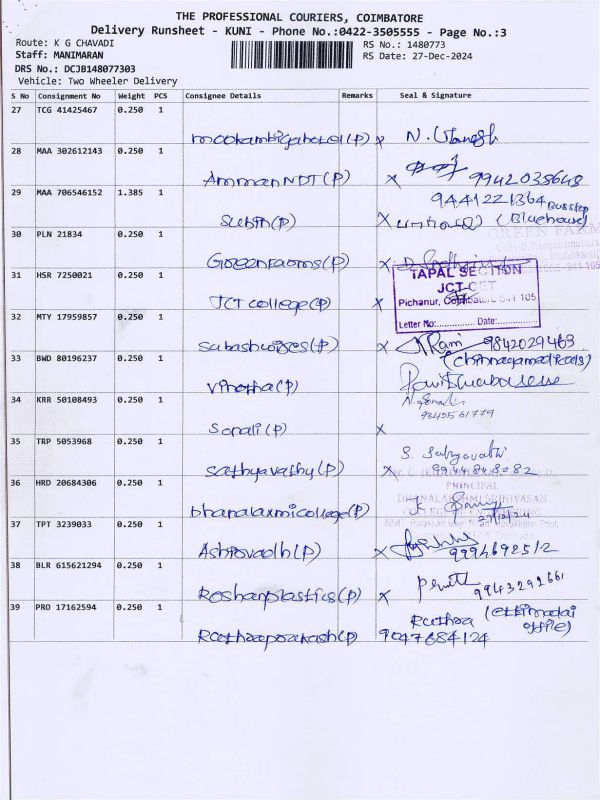 THE PROFESSIONAL COURIERS, COIMBATORE
Delivery Runsheet - KUNI - Phone No.:0422-3505555 - Page No.:3
Route: K G CHAVADI RS No.: 1480773
Staff: MANIMARAN RS Date: 27-Dec-2024
DRS No.: DCJB148077303
Vehicle: Two Wheeler Delivery
S No Consignment No Weight PCS Consignee Details Remarks Seal & Signature
27 TCG 41425467 0.250 1
mookambigahotel(P) x
28 MAA 302612143 0.250 1
Amman NDT (P) x 9942038648
29 MAA 706546152 1.385 1
9441221364 Busstop
Subin(P) x (Bluehouse)
30 PLN 21834 0.250 1
GREEN FARM
GreenFarms(P) x
31 HSR 7250021 0.250 1
TAPAL SECTION
JCT-CET
JCT college(P) x Pichanur, Coimbatore 641 105
Letter No:............ Date:............
32 MTY 17959857 0.250 1
x Ram 9842029463
33 BWD 80196237 0.250 1
Vinotha(P)
34 KRR 50108493 0.250 1
9345561779
Sonali(P) x
35 TRP 5053968 0.250 1
S. Sathyavathi
Sathyavathy(P) x 9944848282
36 HRD 20684306 0.250 1
PRINCIPAL
DHANALAKSHMI SRINIVASAN
COLLEGE OF ENGINEERING
Dhanalaxmicollege(P)
37 TPT 3239033 0.250 1
Ashirvadh(P) x 9994692512
38 BLR 615621294 0.250 1
Roshanplastics(P) x 9943292661
39 PRO 17162594 0.250 1
Rathna (ettimadai
office)
Rathnaprakash(P) 9047684124